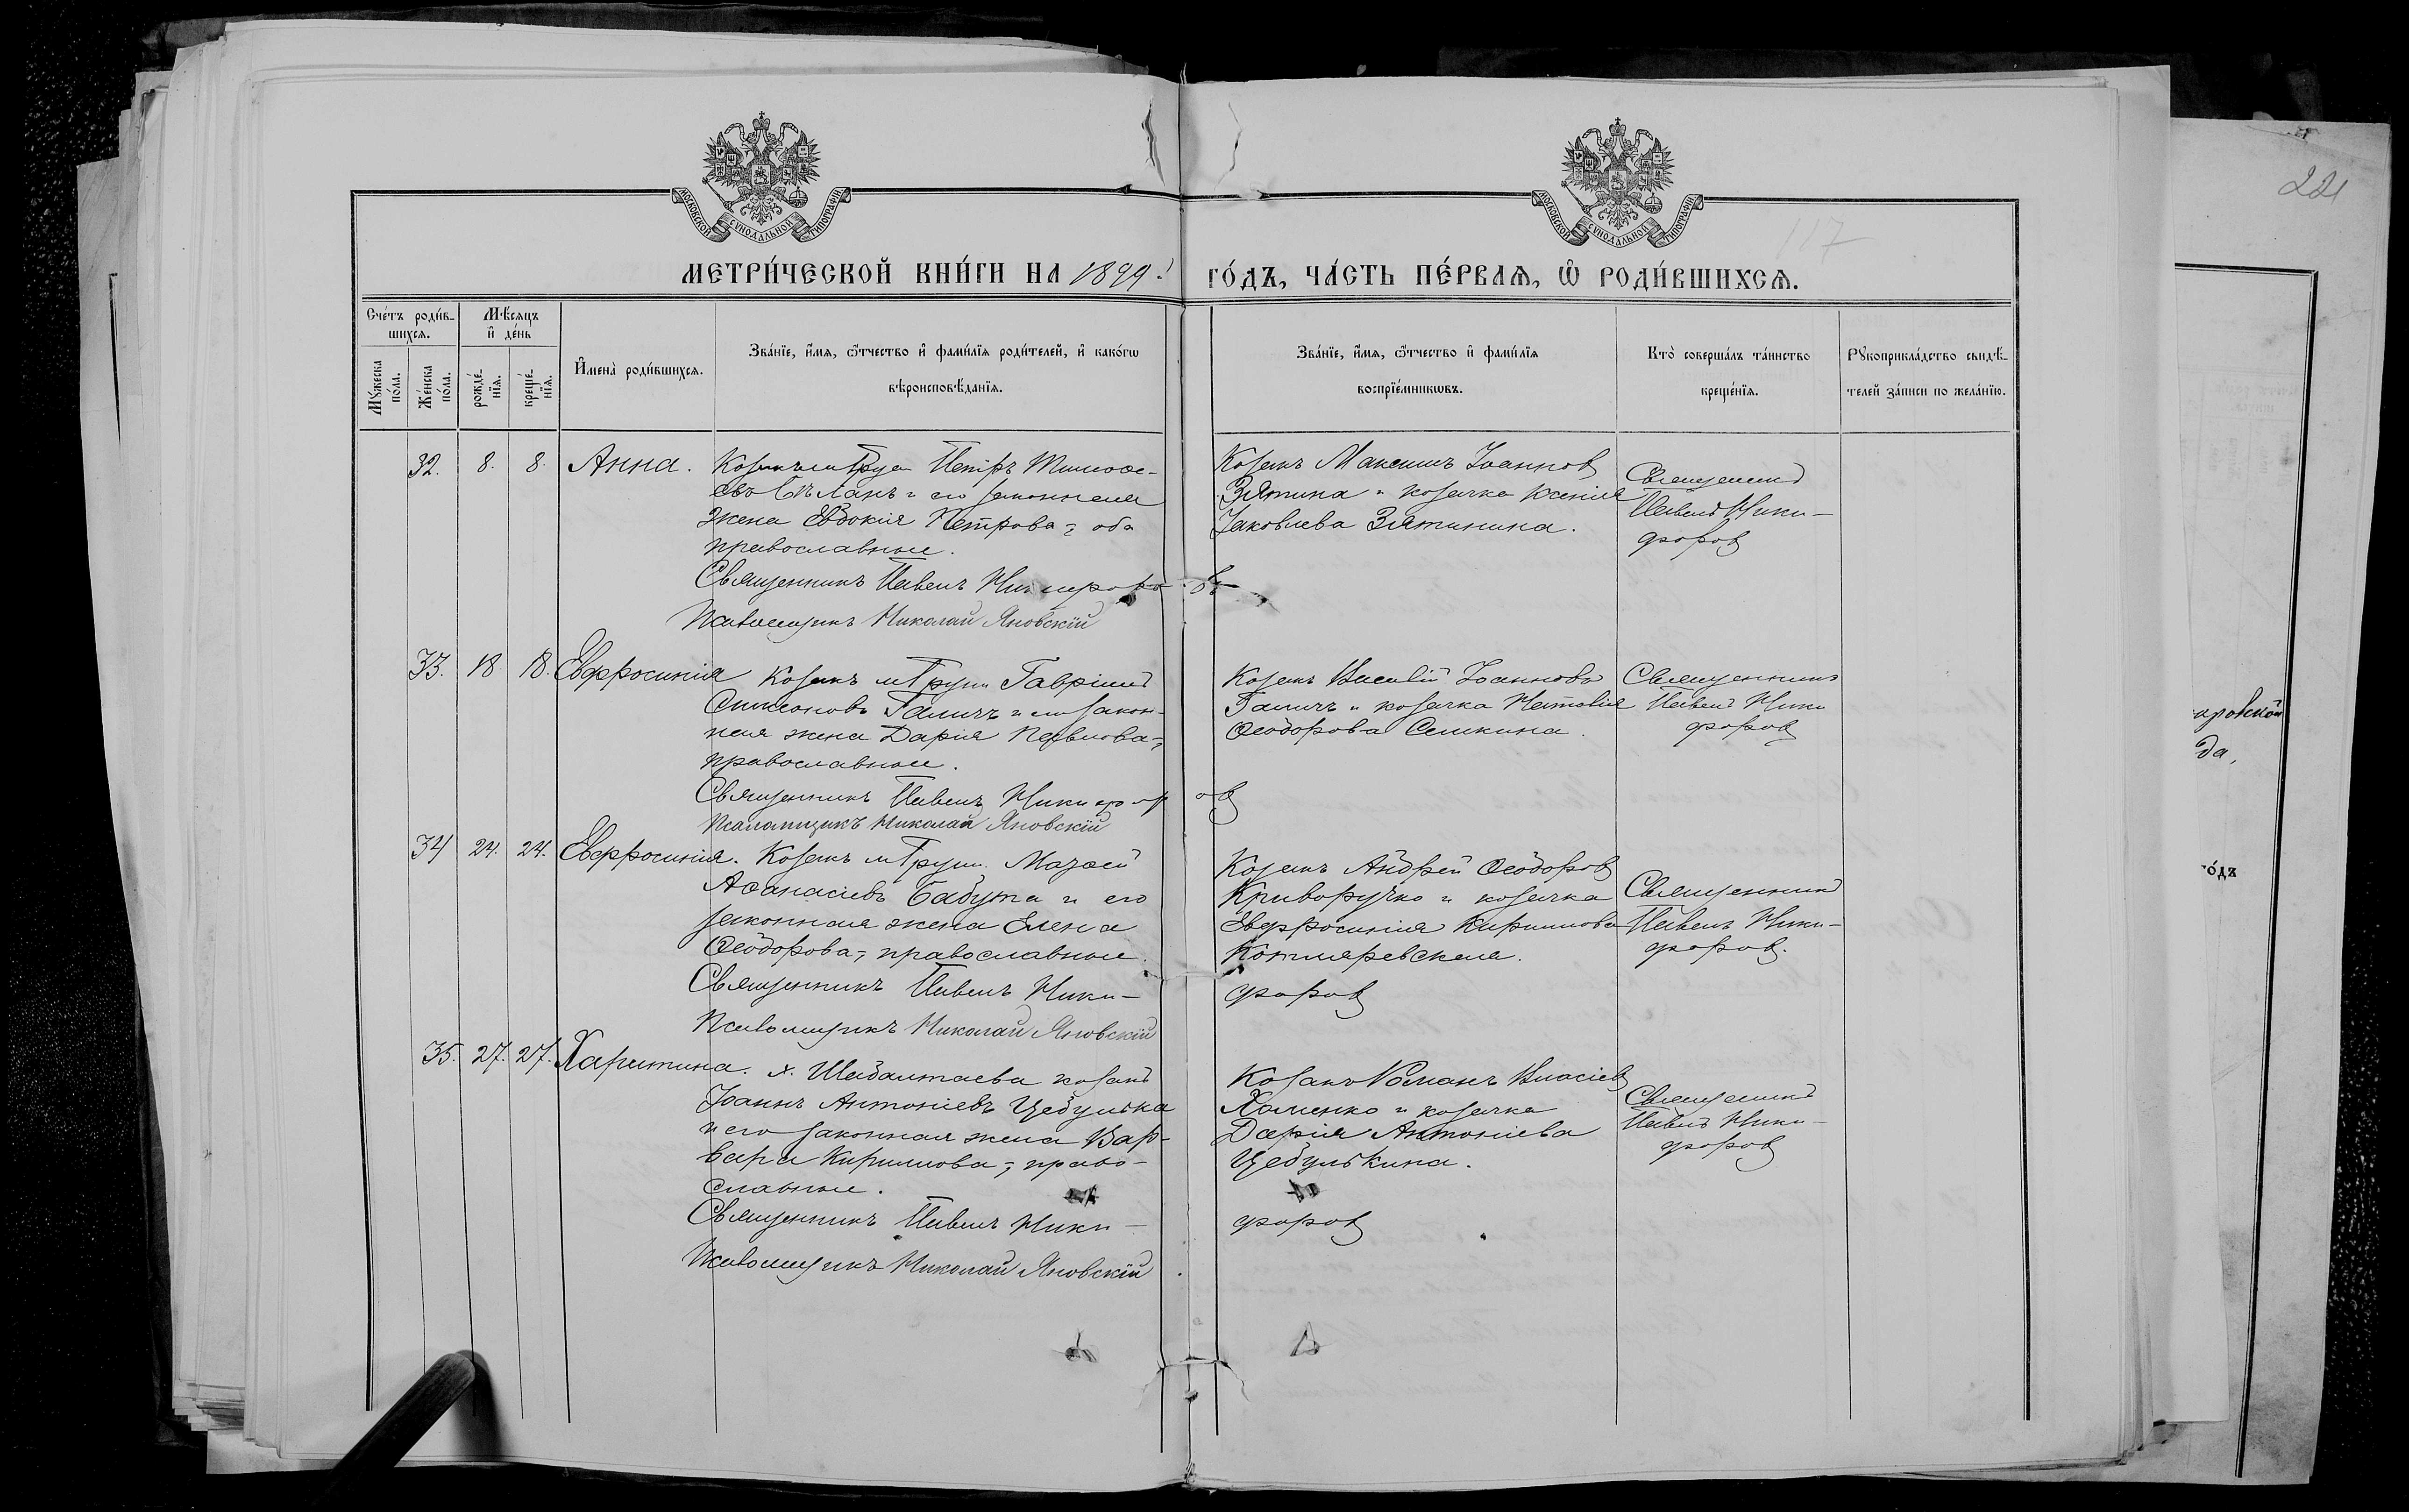 МОСКОВСКОЙ СѴНОДАЛЬНОЙ ТИПОГРАФІИ
МОСКОВСКОЙ СѴНОДАЛЬНОЙ ТИПОГРАФІИ
221
117
МЕТРИ́ЧЕСКОЙ КНИ́ГИ НА 1899 ГО́ДЪ, ЧА́СТЬ ПЕ́РВАѦ, Ѡ҆ РОДИ́ВШИХСѦ.
Сче́тъ роди́в-
шихсѧ.
Мѣ́сѧцъ
и҆ де́нь
Мꙋ́жеска
по́ла.
Же́нска
по́ла.
рожде́-
нїѧ.
креще́-
нїѧ.
И҆мена̀ роди́вшихсѧ.
Зва́нїе, и҆́мѧ, ѻ҆́тчество и҆ фами́лїѧ роди́телей, и҆ како́гѡ
вѣроисповѣ́данїѧ.
Зва́нїе, и҆́мѧ, ѻ҆́тчество и҆ фами́лїѧ
воспрїе́мникѡвъ.
Кто̀ соверша́лъ та́инство
креще́нїѧ.
Рꙋкоприкла́дство свидѣ́-
телей за́писи по жела́нїю.
32. 8. 8. Анна.
Козакъ м Груни Петръ Тимоѳе-
евъ Бѣланъ и его законная
жена Евдокія Петрова, оба
православные.
Священникъ Павелъ Никифоровъ
Псаломщикъ Николай Яновскій
Козакъ Максимъ Іоаннов
Зятина и козачка Ксенія
Іаковлева Зятинина.
Священникъ
Павелъ Ники-
форов
33. 18 18. Евфросинія
Козакъ м Груни Гавріилъ
Симеоновъ Галичъ и его закон-
ная жена Дарія Павлова,
православные.
Священникъ Павелъ Никифоров
Псаломщикъ Николай Яновскій
Козакъ Василій Іоанновъ
Галичъ и козачка Наталія
Ѳеодорова Сликина.
Священникъ
Павелъ Ники
форов
34 24. 24. Евфросинія.
Козакъ м Груни
Аѳанасіевъ Бабута и его
законная жена Елена
Ѳеодорова, православные.
Священникъ Павелъ Ники-
форов
Псаломщикъ Николай Яновскій
Козакъ Андрей Ѳеодоров
Криворучко и козачка
Евфросинія Кириллова
Котляревская.
Священникъ
Павелъ Ники-
форов.
35. 27. 27. Харитина.
х. Шабалтаева козакъ
Іоаннъ Антоніевъ Цебулька
и его законная жена Вар-
вара Кириллова, право-
славные.
Священникъ Павелъ Ники-
форов
Псаломщикъ Николай Яновскій
Козакъ Романъ Власіев
Хоменко и козачка
Дарія Антоніева
Цебулькина.
Священникъ
Павелъ Ники-
форов
да,
го́дъ